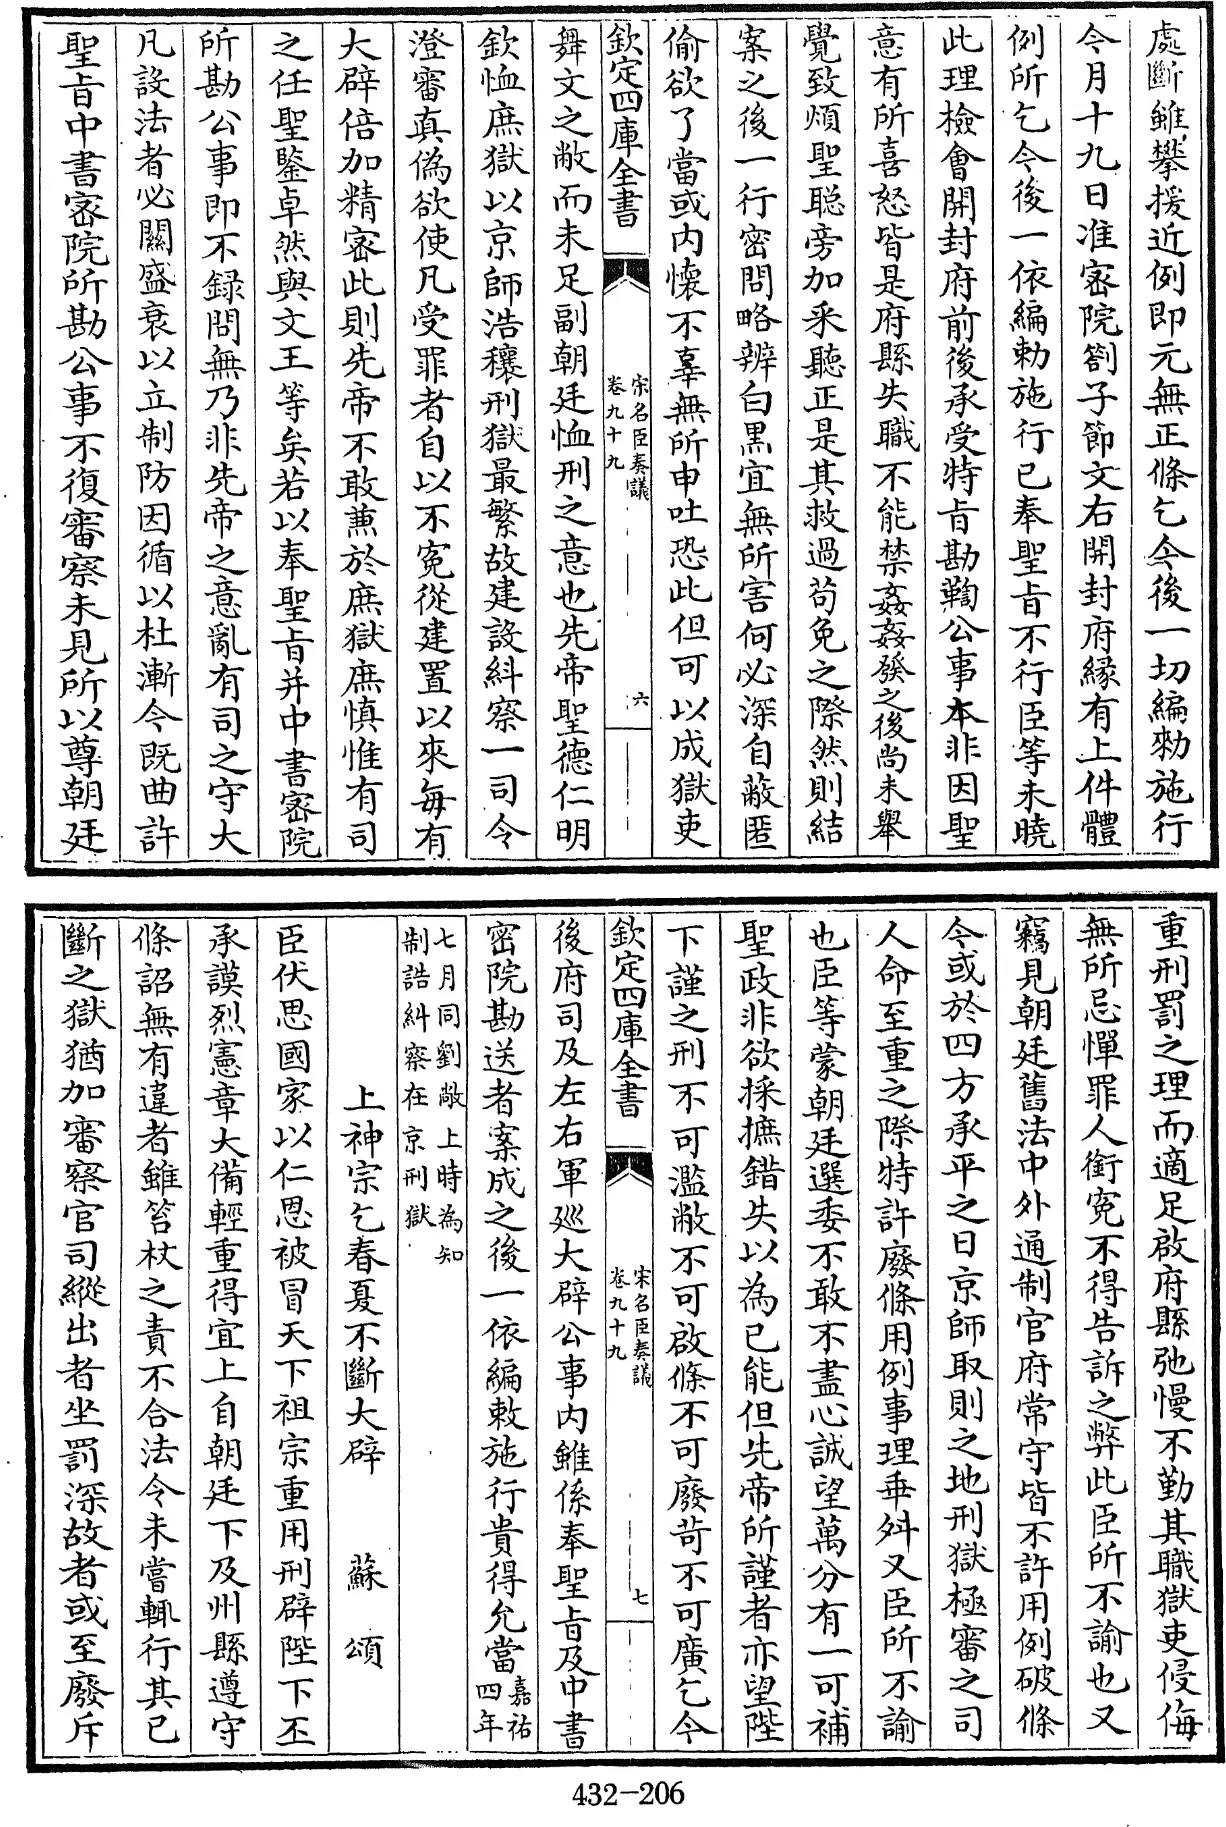 處斷雖攀援近例即元無正條乞今後一切編勑施行
今月十九日准密院劄子節文右開封府縁有上件體
例所乞今後一依編勅施行已奉聖旨不行臣等未曉
此理檢會開封府前後承受特旨勘鞫公事本非因聖
意有所喜怒皆是府縣失職不能禁姦姦發之後尚未舉
覺致煩聖聪旁加采聽正是其救過苟免之際然則結
案之後一行密問略辨白黒宜無所害何必深自蔽匿
偷欲了當或内懐不辜無所申吐恐此但可以成獄吏
欽定四庫全書
宋名臣奏議
卷九十九
六
舞文之敝而未足副朝廷恤刑之意也先帝聖德仁明
欽恤庶獄以京師浩穰刑獄最繁故建設糾察一司令
澄審真偽欲使凡受罪者自以不寃從建置以來每有
大辟倍加精宻此則先帝不敢蕉於庶獄庶慎惟有司
之任聖鑒卓然與文王等矣若以奉聖旨并中書宻院
所勘公事即不録問無乃非先帝之意亂有司之守大
凡設法者必關盛衰以立制防因循以杜漸今既曲許
聖旨中書宻院所勘公事不復審察未見所以尊朝廷
重刑罰之理而適足啟府縣弛慢不勤其職獄吏侵侮
無所忌憚罪人銜寃不得告訴之弊此臣所不諭也又
竊見朝廷舊法中外通制官府常守皆不許用例破條
今或於四方承平之日京師取則之地刑獄極審之司
人命至重之際特許廢條用例事理乖舛又臣所不諭
也臣等蒙朝廷選委不敢不盡心誠望萬分有一可補
聖政非欲採摭錯失以為已能但先帝所謹者亦望陛
下謹之刑不可濫敝不可啟條不可廢苛不可廣乞今
欽定四庫全書
宋名臣奏議
卷九十九
七
後府司及左右軍廵大辟公事内雖係奉聖旨及中書
密院勘送者案成之後一依編敕施行貴得允當嘉祐四年
七月同劉敞上時為知
制誥糾察在京刑獄
上神宗乞春夏不斷大辟 蘇頌
臣伏思國家以仁恩被冒天下祖宗重用刑辟陛下丕
承謨烈憲章大備輕重得宜上自朝廷下及州縣遵守
條詔無有違者雖笞杖之責不合法令未嘗輒行其已
斷之獄猶加審察官司縱出者坐罰深故者或至廢斥
432-206